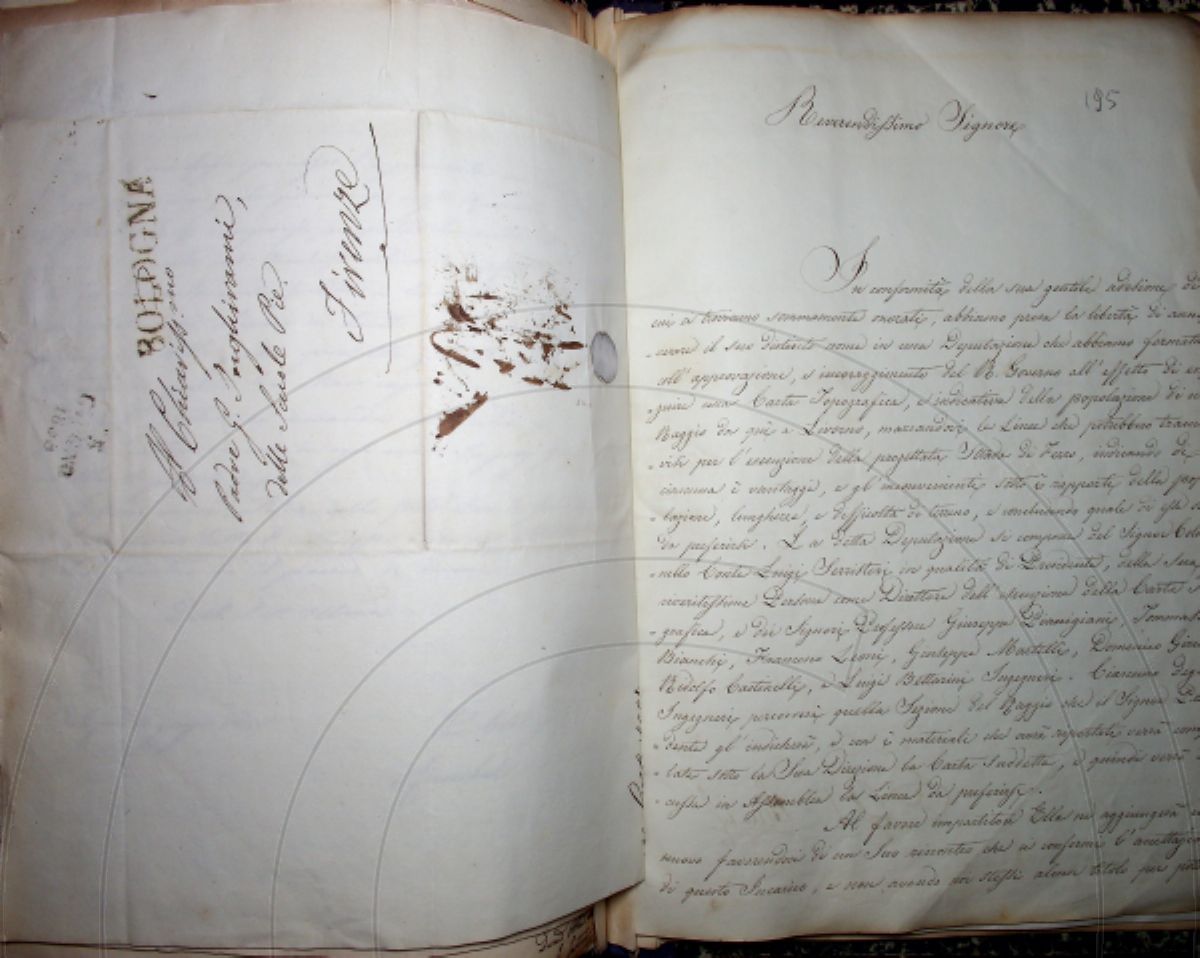 BOLOGNA
Al Chiariss.mo
Padre G. Inghirami,
delle Scuole Pie
Firenze
195
Reverendissimo Signore
In conformità della sua gentile adesione di
cui ci troviamo sommamente onorati, abbiamo presa la libertà di
il suo distinto nome in una Deputazione che abbiamo
coll'approvazione, e incoraggimento del R. Governo all'effetto di
una Carta Topografica, e indicativa della popolazione di
Raggio da quì a Livorno, marcandovi le Linee che potrebbero
per l'esecuzione della progettata Strada di Ferro, indicando di
ciascuna i vantaggi, e gl'inconvenienti sotto i rapporti della
-lazione, lunghezza, e difficoltà di terreno, e concludendo quale di esse
da preferirsi. La detta Deputazione si compone del Signor
-nello Conte Luigi Serristori in qualità di Presidente, della sua
riveritissima Persona come Direttore dell'esecuzione della Carta
-grafica, e dei Signori Professore Giuseppe
Bianchi, Francesco Leoni, Giuseppe Martelli, Domenico
Ridolfo Castinelli, e Luigi Bettarini Ingegneri. Ciascuno
Ingegneri percorrerà quella Sezione del Raggio che il Signor
-dente gl'indicherà, e con i materiali che avrà riportati verrà
-late sotto la Sua Direzione la Carta suddetta, e quindi verrà
-cussa in Assemblea la Linea da preferirsi.
Al favore impartitoci Ella ne aggiungerà
nuovo favorendoci di un Suo riscontro che ci confermi l'accettazione
di questo Incarico, e non avendo noi stessi alcun titolo per